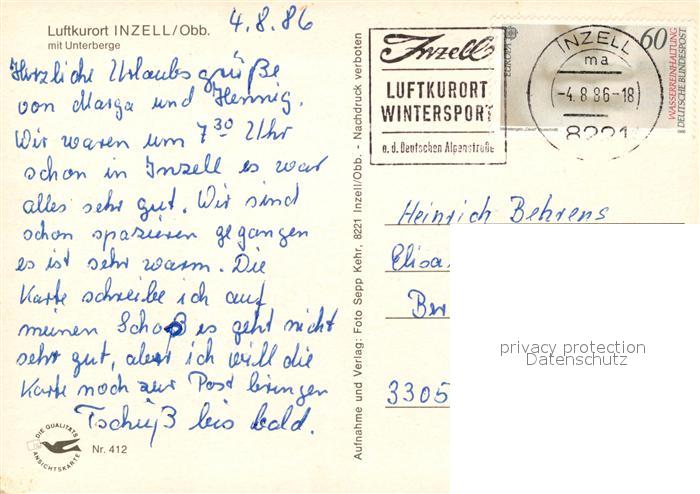 Luftkurort INZELL/Obb.
mit Unterberge
4.8.86
Herzliche Urlaubsgrüße
von Marga und Hennig.
Wir waren um 7 30 Uhr
schon in Inzell es war
alles sehr gut. Wir sind
schon spazieren gegangen
es ist sehr warm. Die
Karte schreibe ich auf
meinen Schoß es geht nicht
sehr gut, aber ich will die
Karte noch zur Post bringen
Tschüß bis bald.
DIE QUALITÄTS
ANSICHTSKARTE
Nr. 412
Aufnahme und Verlag: Foto Sepp Kehr, 8221 Inzell/Obb. - Nachdruck verboten
Inzell
LUFTKURORT
WINTERSPORT
a. d. Deutschen Alpenstraße
EUROPA
60
WASSERREINHALTUNG
DEUTSCHE BUNDESPOST
INZELL
ma
-4.8.86-18
8221
Heinrich Behrens
Elisa
Ber
3305
privacy protection
Datenschutz